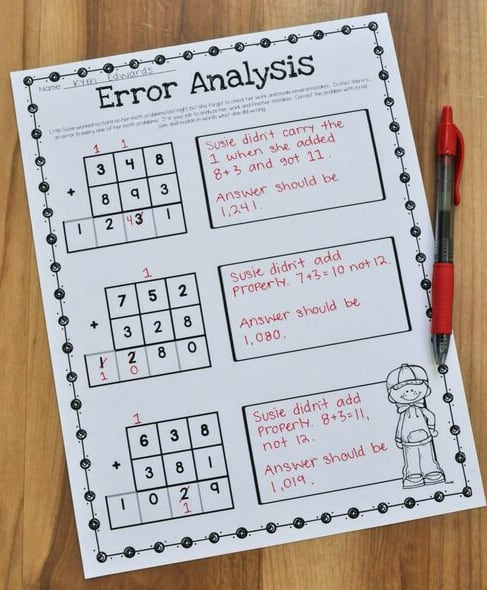 Name Kym Edwards
Error Analysis
Little Susie worked so hard on her math problems last night, but she forgot to check her work and made several mistakes. In fact, there is
an error in every one of her math problems. It is your job to analyze her work and find her mistakes. Correct the problem with a red
pen and explain in words what she did wrong.
1 1
3 4 8
+
8 9 3
1 2 4 3 1
Susie didn't carry the
1 when she added
8+3 and got 11.
Answer should be
1,241.
1
7 5 2
+
3 2 8
1 2 8 0
1 0
Susie didn't add
properly. 7+3=10 not 12.
Answer should be
1,080.
1
6 3 8
+
3 8 1
1 0 2 9
1
Susie didn't add
properly. 8+3=11,
not 12.
Answer should be
1,019.